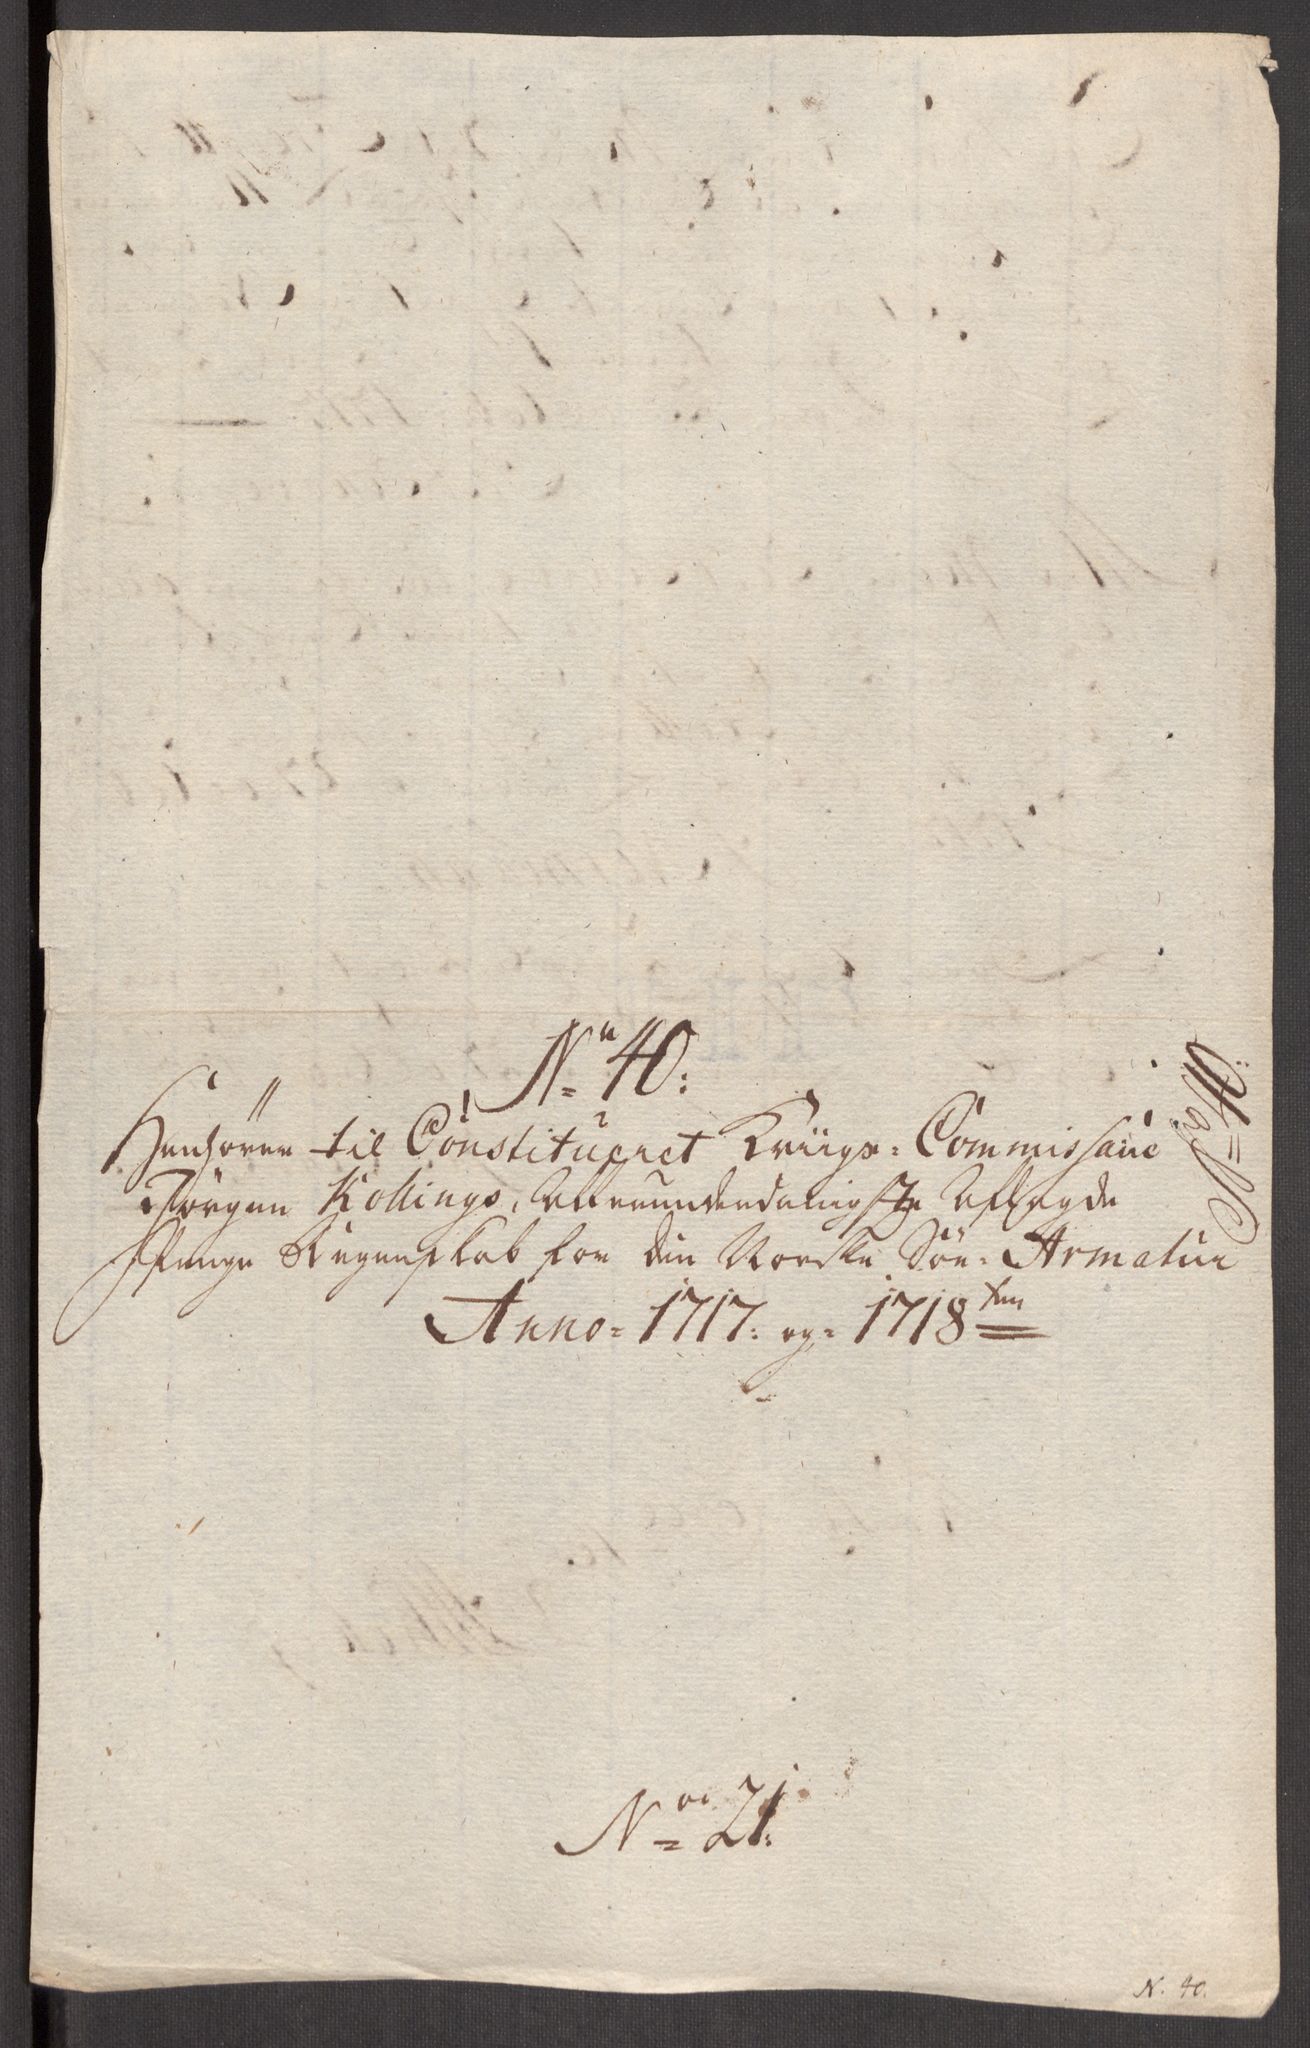 No 40:
Henhörer til Constitueret Kriigs=Commissair
Jörgen Kollings, Allerunderdanigste Aflagde
Penge Regenskab for den Norske Söe=Armatur
Anno=1717: og=1718ten
No 21:
N. 40.